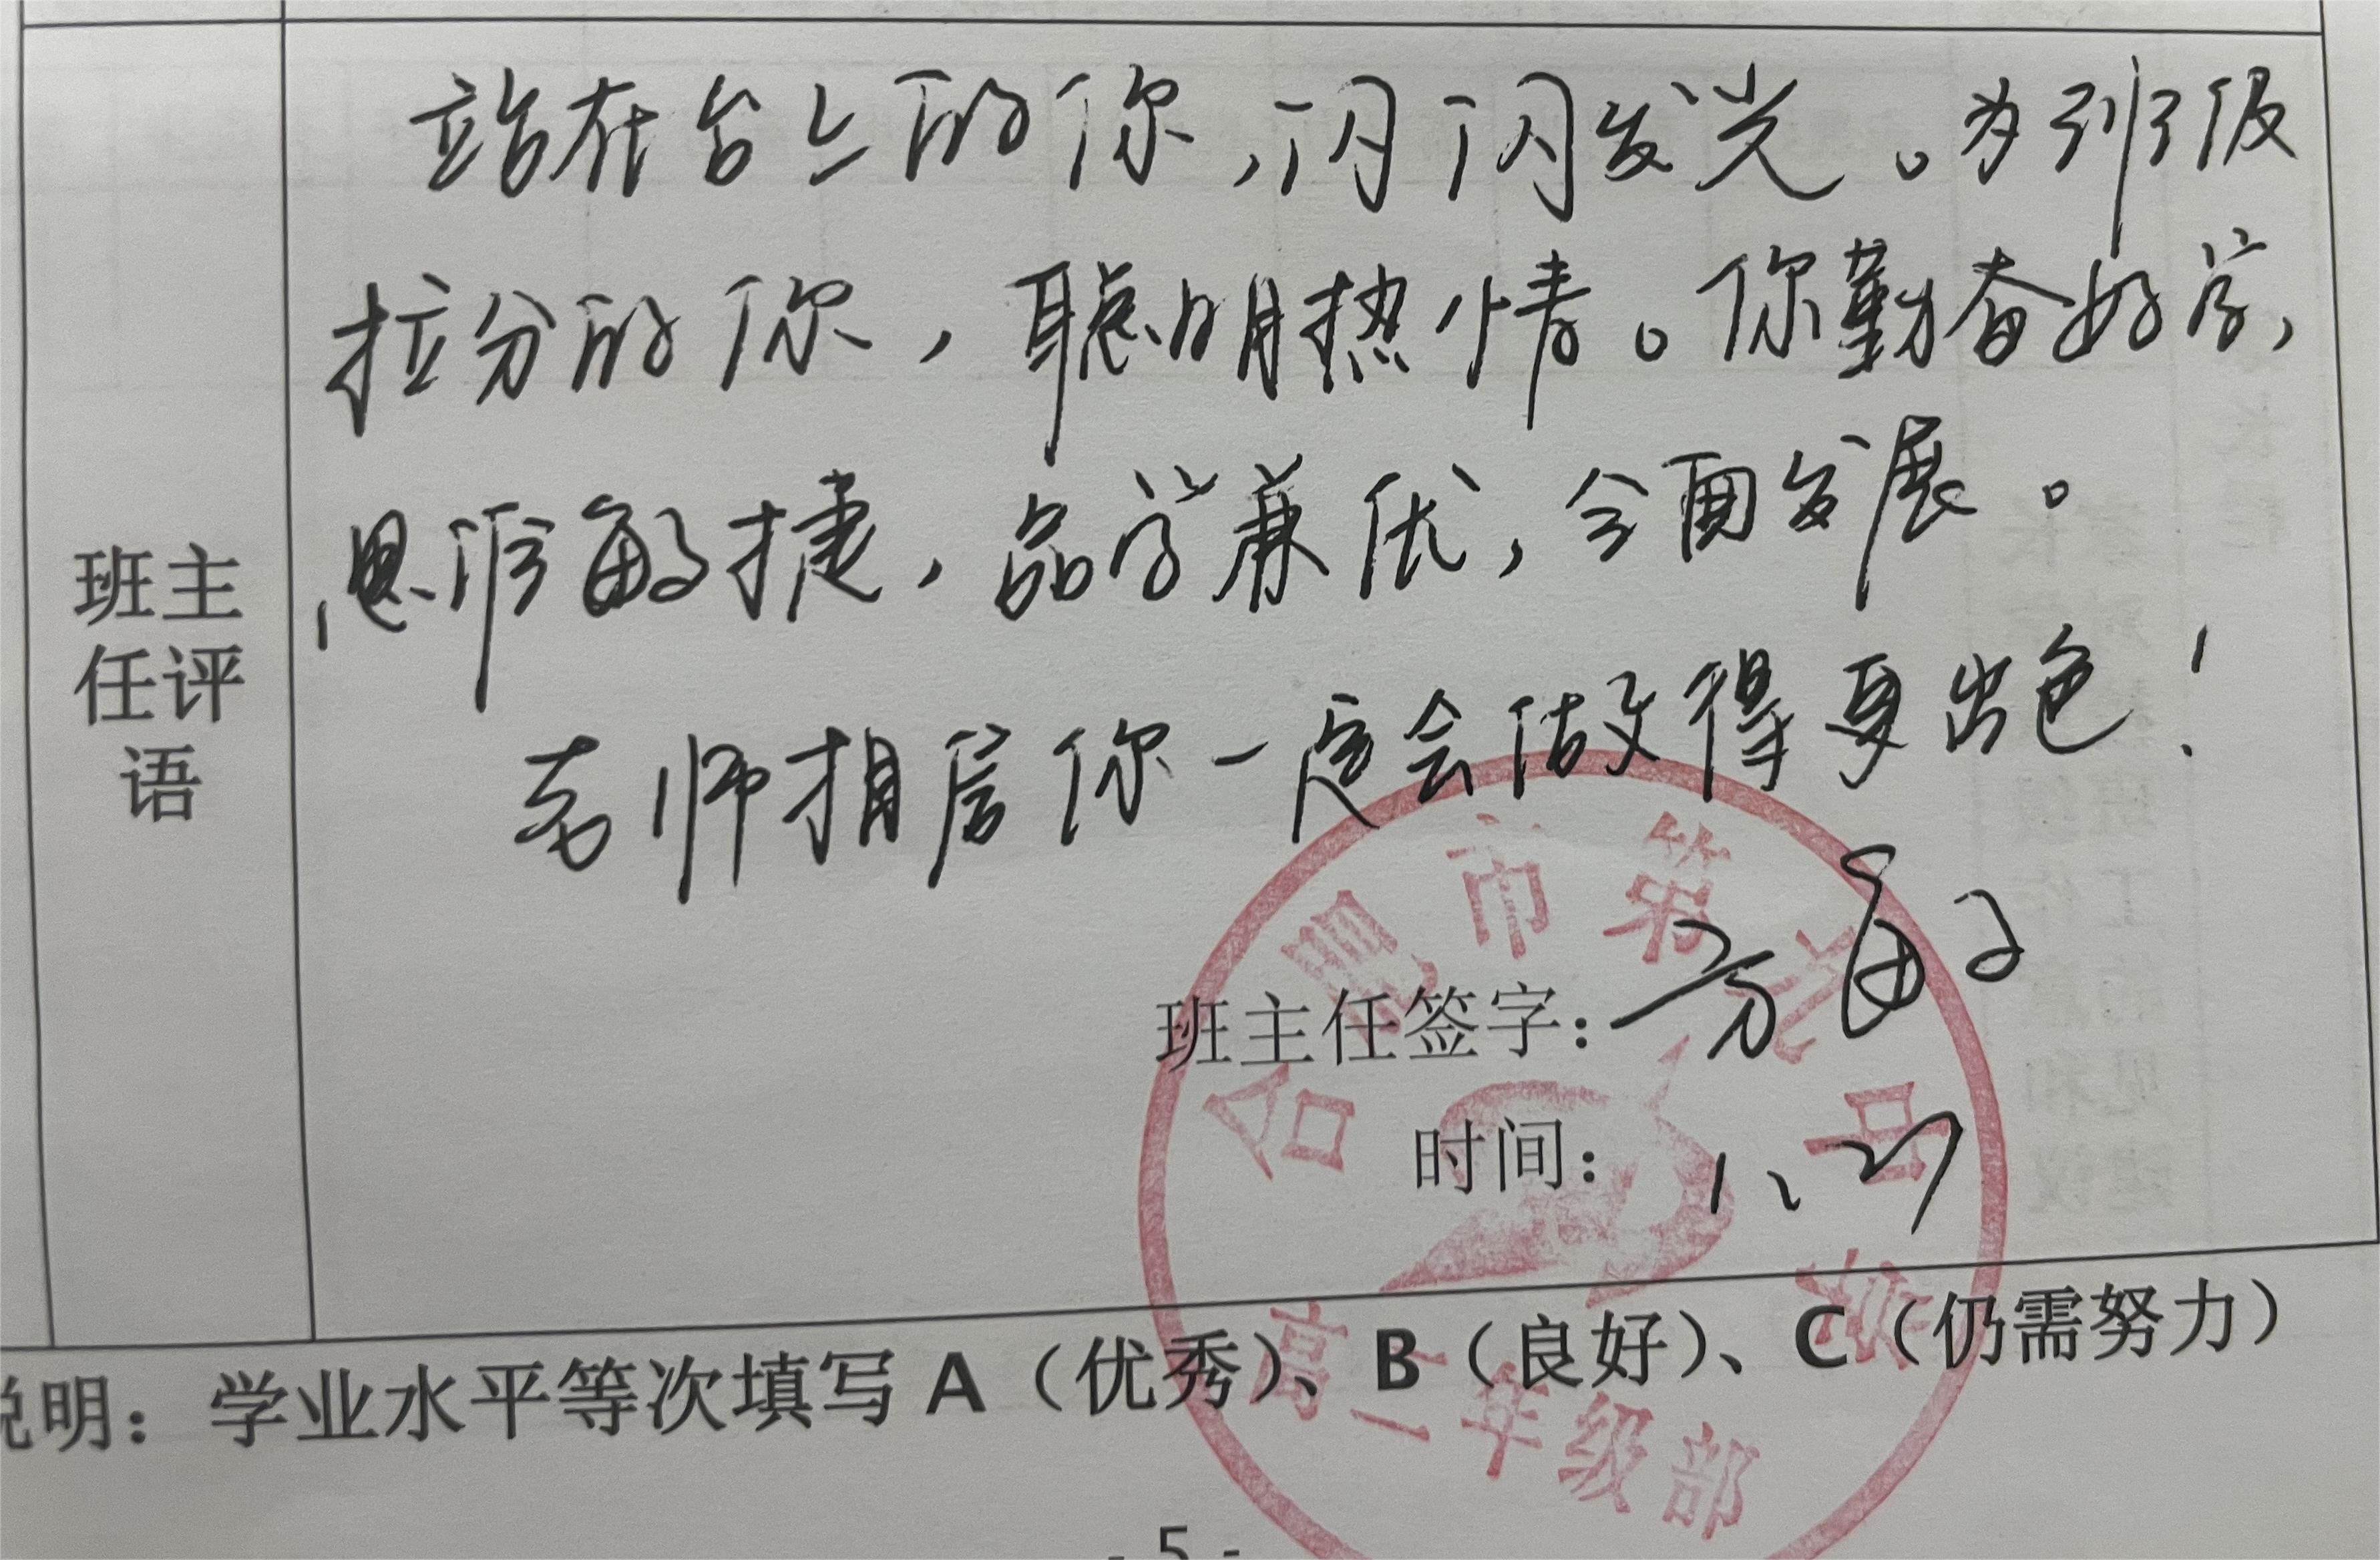 站在台上的你,闪闪发光。为班级
拉分的你,聪明热情。你勤奋好学,
思维敏捷,品学兼优,全面发展。
老师相信你一定会做得更出色!
班主
任评
语
班主任签字:方敏
时间:1、27
合肥市第六中学
高二年级部
说明:学业水平等次填写 A(优秀)、B(良好)、C(仍需努力)
- 5 -